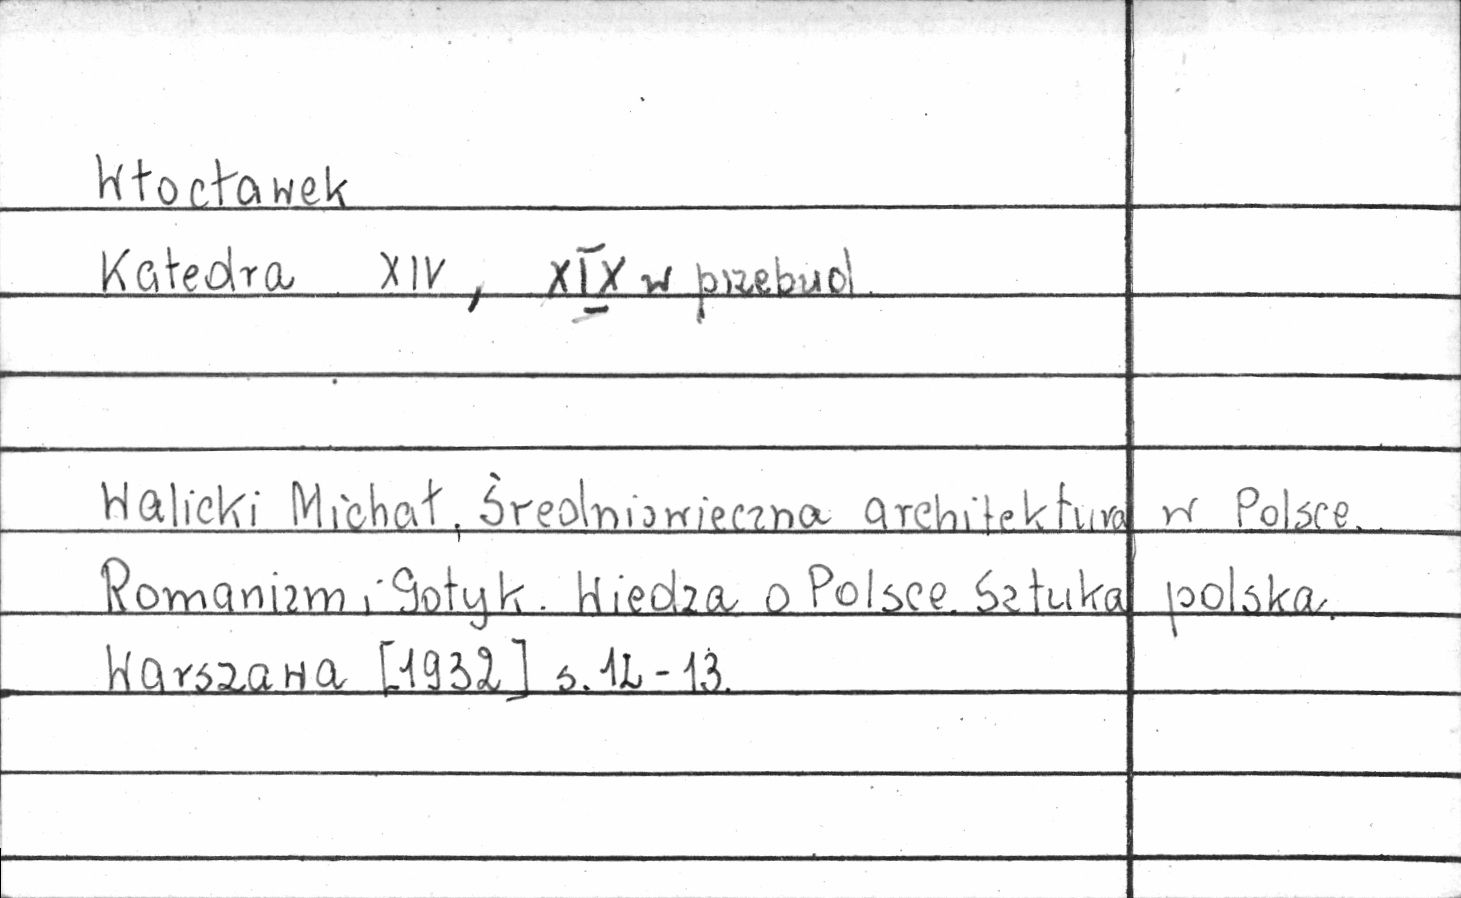 Włocławek
Katedra XIV, XIX w przebud.
Walicki Michał, Średniowieczna architektura w Polsce.
Romanizm i Gotyk. Wiedza o Polsce. Sztuka polska.
Warszawa [1932] s. 12-13.